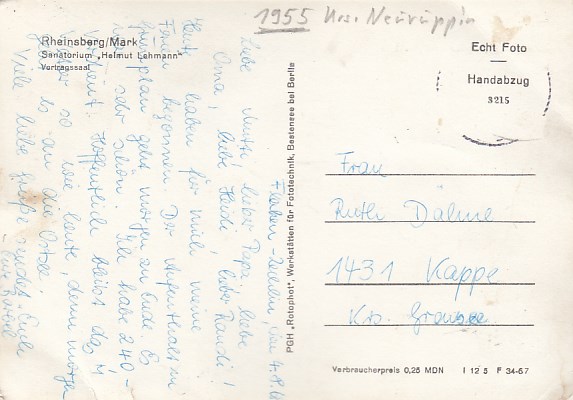 1955 Krs. Neuruppin
Rheinsberg/Mark
Sanatorium „Helmut Lehmann"
Vortragssaal
den 4.8.
Liebe Mutti, lieber Papa, liebe
Oma, liebe Heidi, lieber Randi!
Heute haben für mich meine
Ferien begonnen. Der Aufenthalt in
geht morgen zu Ende. Es
war sehr schön. Ich habe 240,-
verdient. Hoffentlich bleibt das
so wie heute, denn morgen
geht es an die Ostsee.
Viele liebe Grüße sendet Euch
PGH „Rotophot", Werkstätten für Fototechnik, Bestensee bei Berlin
Echt Foto
Handabzug
3215
Frau
Ruth Dähne
1431 Kappe
Krs. Gransee
Verbraucherpreis 0,25 MDN I 12 5 F 34-67